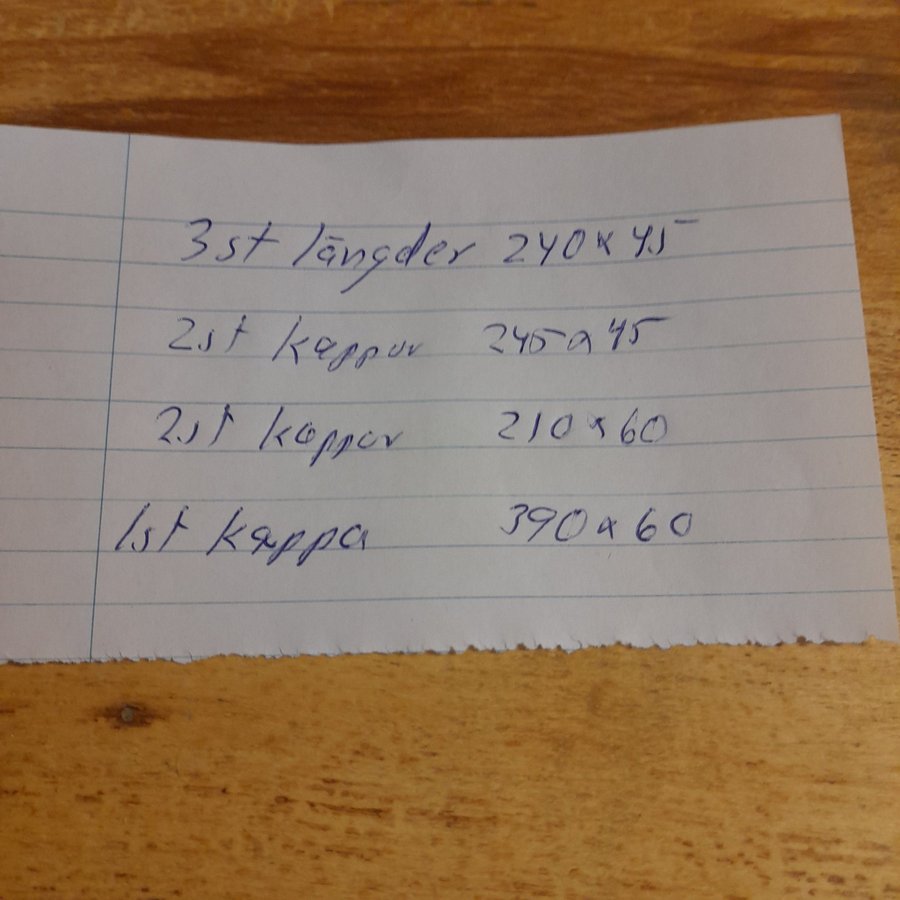 3st längder 240x45
2st kappor 245x45
2st kappor 210x60
1st kappa 390x60